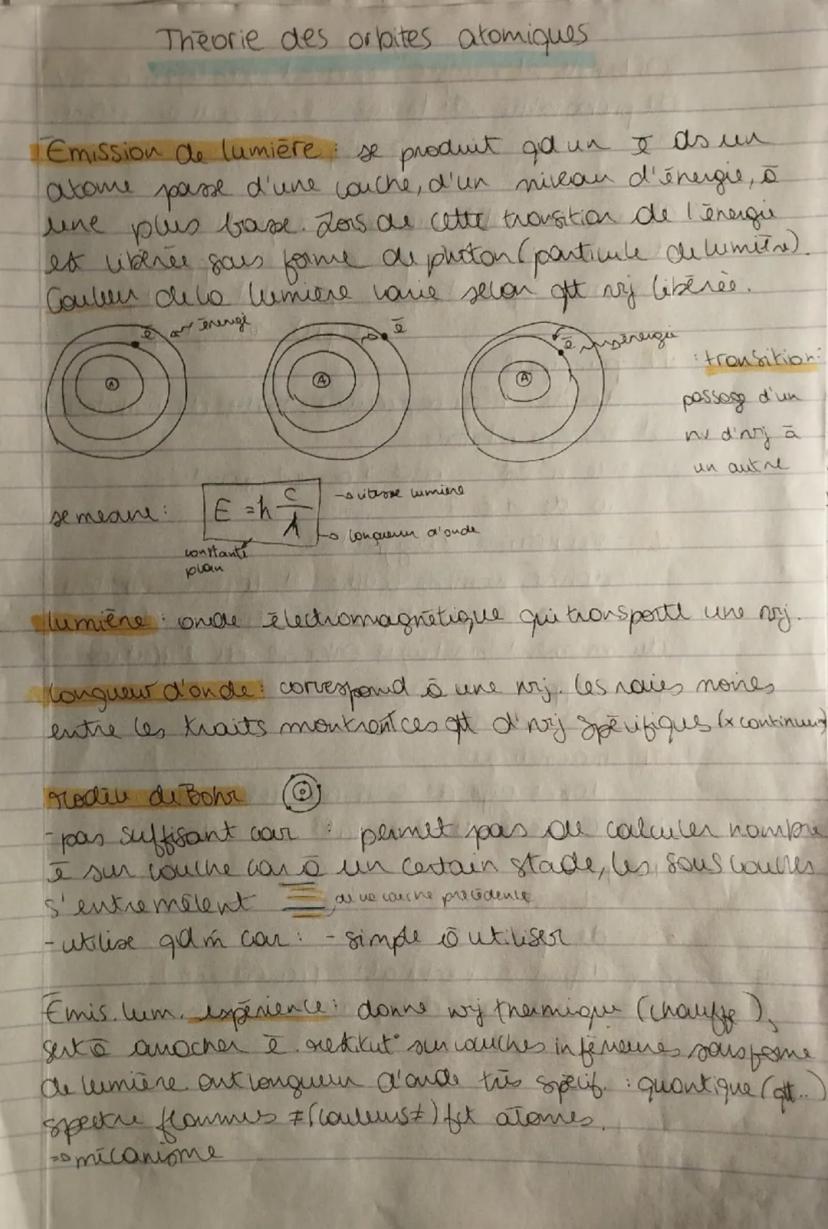 Théorie des orbites atomiques
Émission de lumière : se produit qd un ē ds un
atome passe d'une couche, d'un niveau d'énergie, à
une plus basse. Lors de cette transition de l'énergie
est libérée sous forme de photon (particule de lumière).
Couleur de la lumière varie selon qtt nrj libérée.
ē énergie
ē
ē énergie
: transition:
passage d'un
nv d'nrj à
un autre
se mesure : E = h c/λ
→ vitesse lumière
→ longueur d'onde
constante
plan
lumière : onde électromagnétique qui transporte une nrj.
Longueur d'onde : correspond à une nrj. les raies noires
entre les traits montrent ces qtt d'nrj spécifiques (x continues)
Modèle de Bohr
- pas suffisant car : permet pas de calculer nombre
ē sur couche car à un certain stade, les sous couches
s'entremêlent de la couche précédente
- utilise qd m̂ car : - simple à utiliser
Émis. lum. expérience : donne nrj thermique (chauffe),
sert à arracher ē. restitut° sur couches inférieures sous forme
de lumière ont longueur d'onde très spécif. : quantique (qtt..)
spectre flammes ≠ (couleurs ≠) fct atomes.
⇒ mécanisme